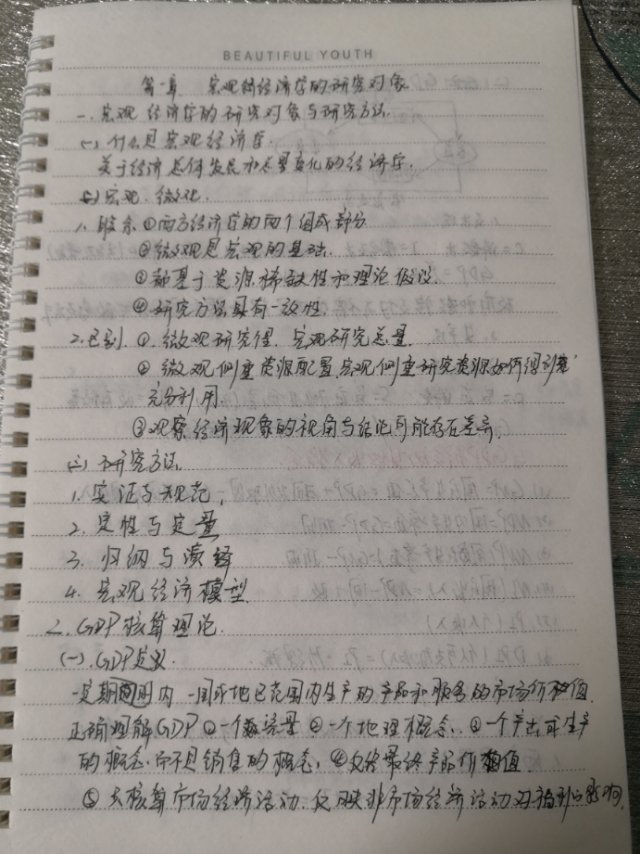 BEAUTIFUL YOUTH
第一章 宏观经济学的研究对象
一. 宏观经济学的研究对象与研究方法.
(一) 什么是宏观经济学.
关于经济总体发展和总量变化的经济学.
(二) 宏观、微观.
1. 联系 ①西方经济学的两个组成部分
②微观是宏观的基础.
③都基于资源稀缺性和理论假设
④研究方法具有一致性
2. 区别. ①. 微观研究个量. 宏观研究总量
② 微观侧重资源配置,宏观侧重研究资源如何得到
充分利用
③观察经济现象的视角与结论可能存在差异.
(三) 研究方法
1. 实证与规范,
2. 定性与定量
3. 归纳与演绎
4. 宏观经济模型
二. GDP核算理论
(一). GDP定义.
一定期间内一国或地区范围内生产的产品和服务的市场价值.
正确理解GDP ①一个流量 ②一个地理概念. ③一个产出或生产
的概念.而不是销售的概念; ④最终产品价值.
⑤ 核算市场经济活动. 非市场经济活动 影响.